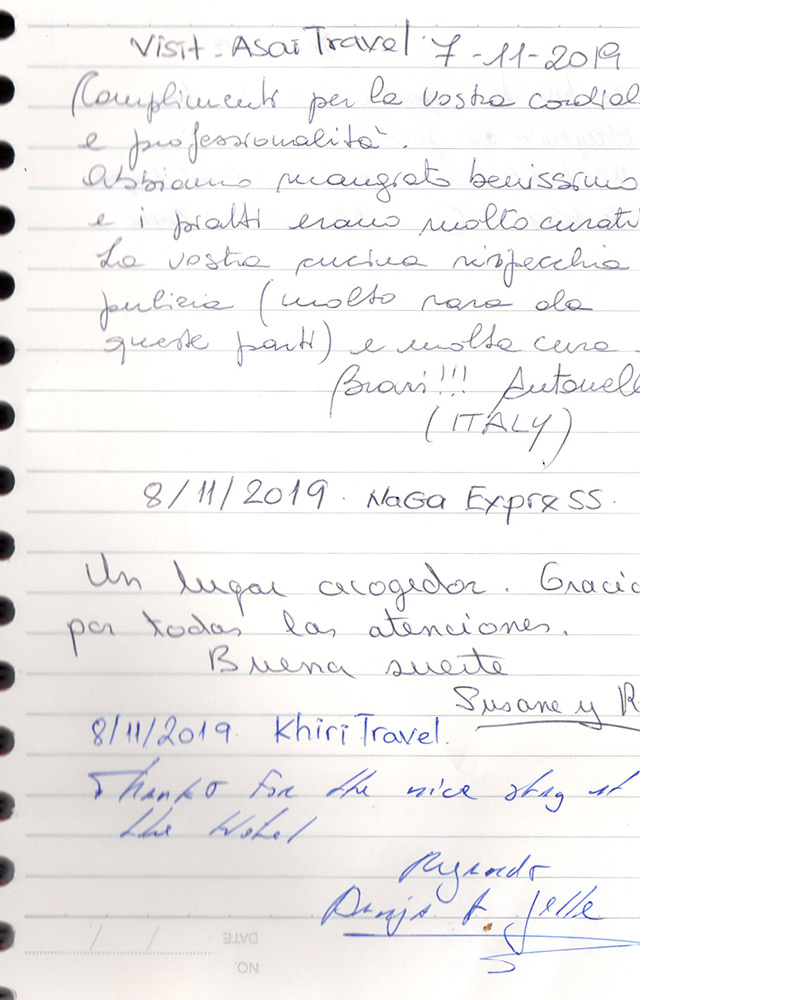 Visit - Asai Travel 7-11-2019
Complimenti per la vostra cordial
e professionalità.
Abbiamo mangiato benissimo
e i piatti erano molto curati
La vostra cucina rispecchia
pulizia (molto rara da
queste parti) e molta cura.
Bravi!!! Antonell
(ITALY)
8/11/2019. NaGa Express.
Un lugar acogedor. Gracia
por todas las atenciones.
Buena suerte
Susane y R
8/11/2019. Khiri Travel.
Thanks for the nice stay at
the Hotel
Regards
Jelle
DATE
NO.